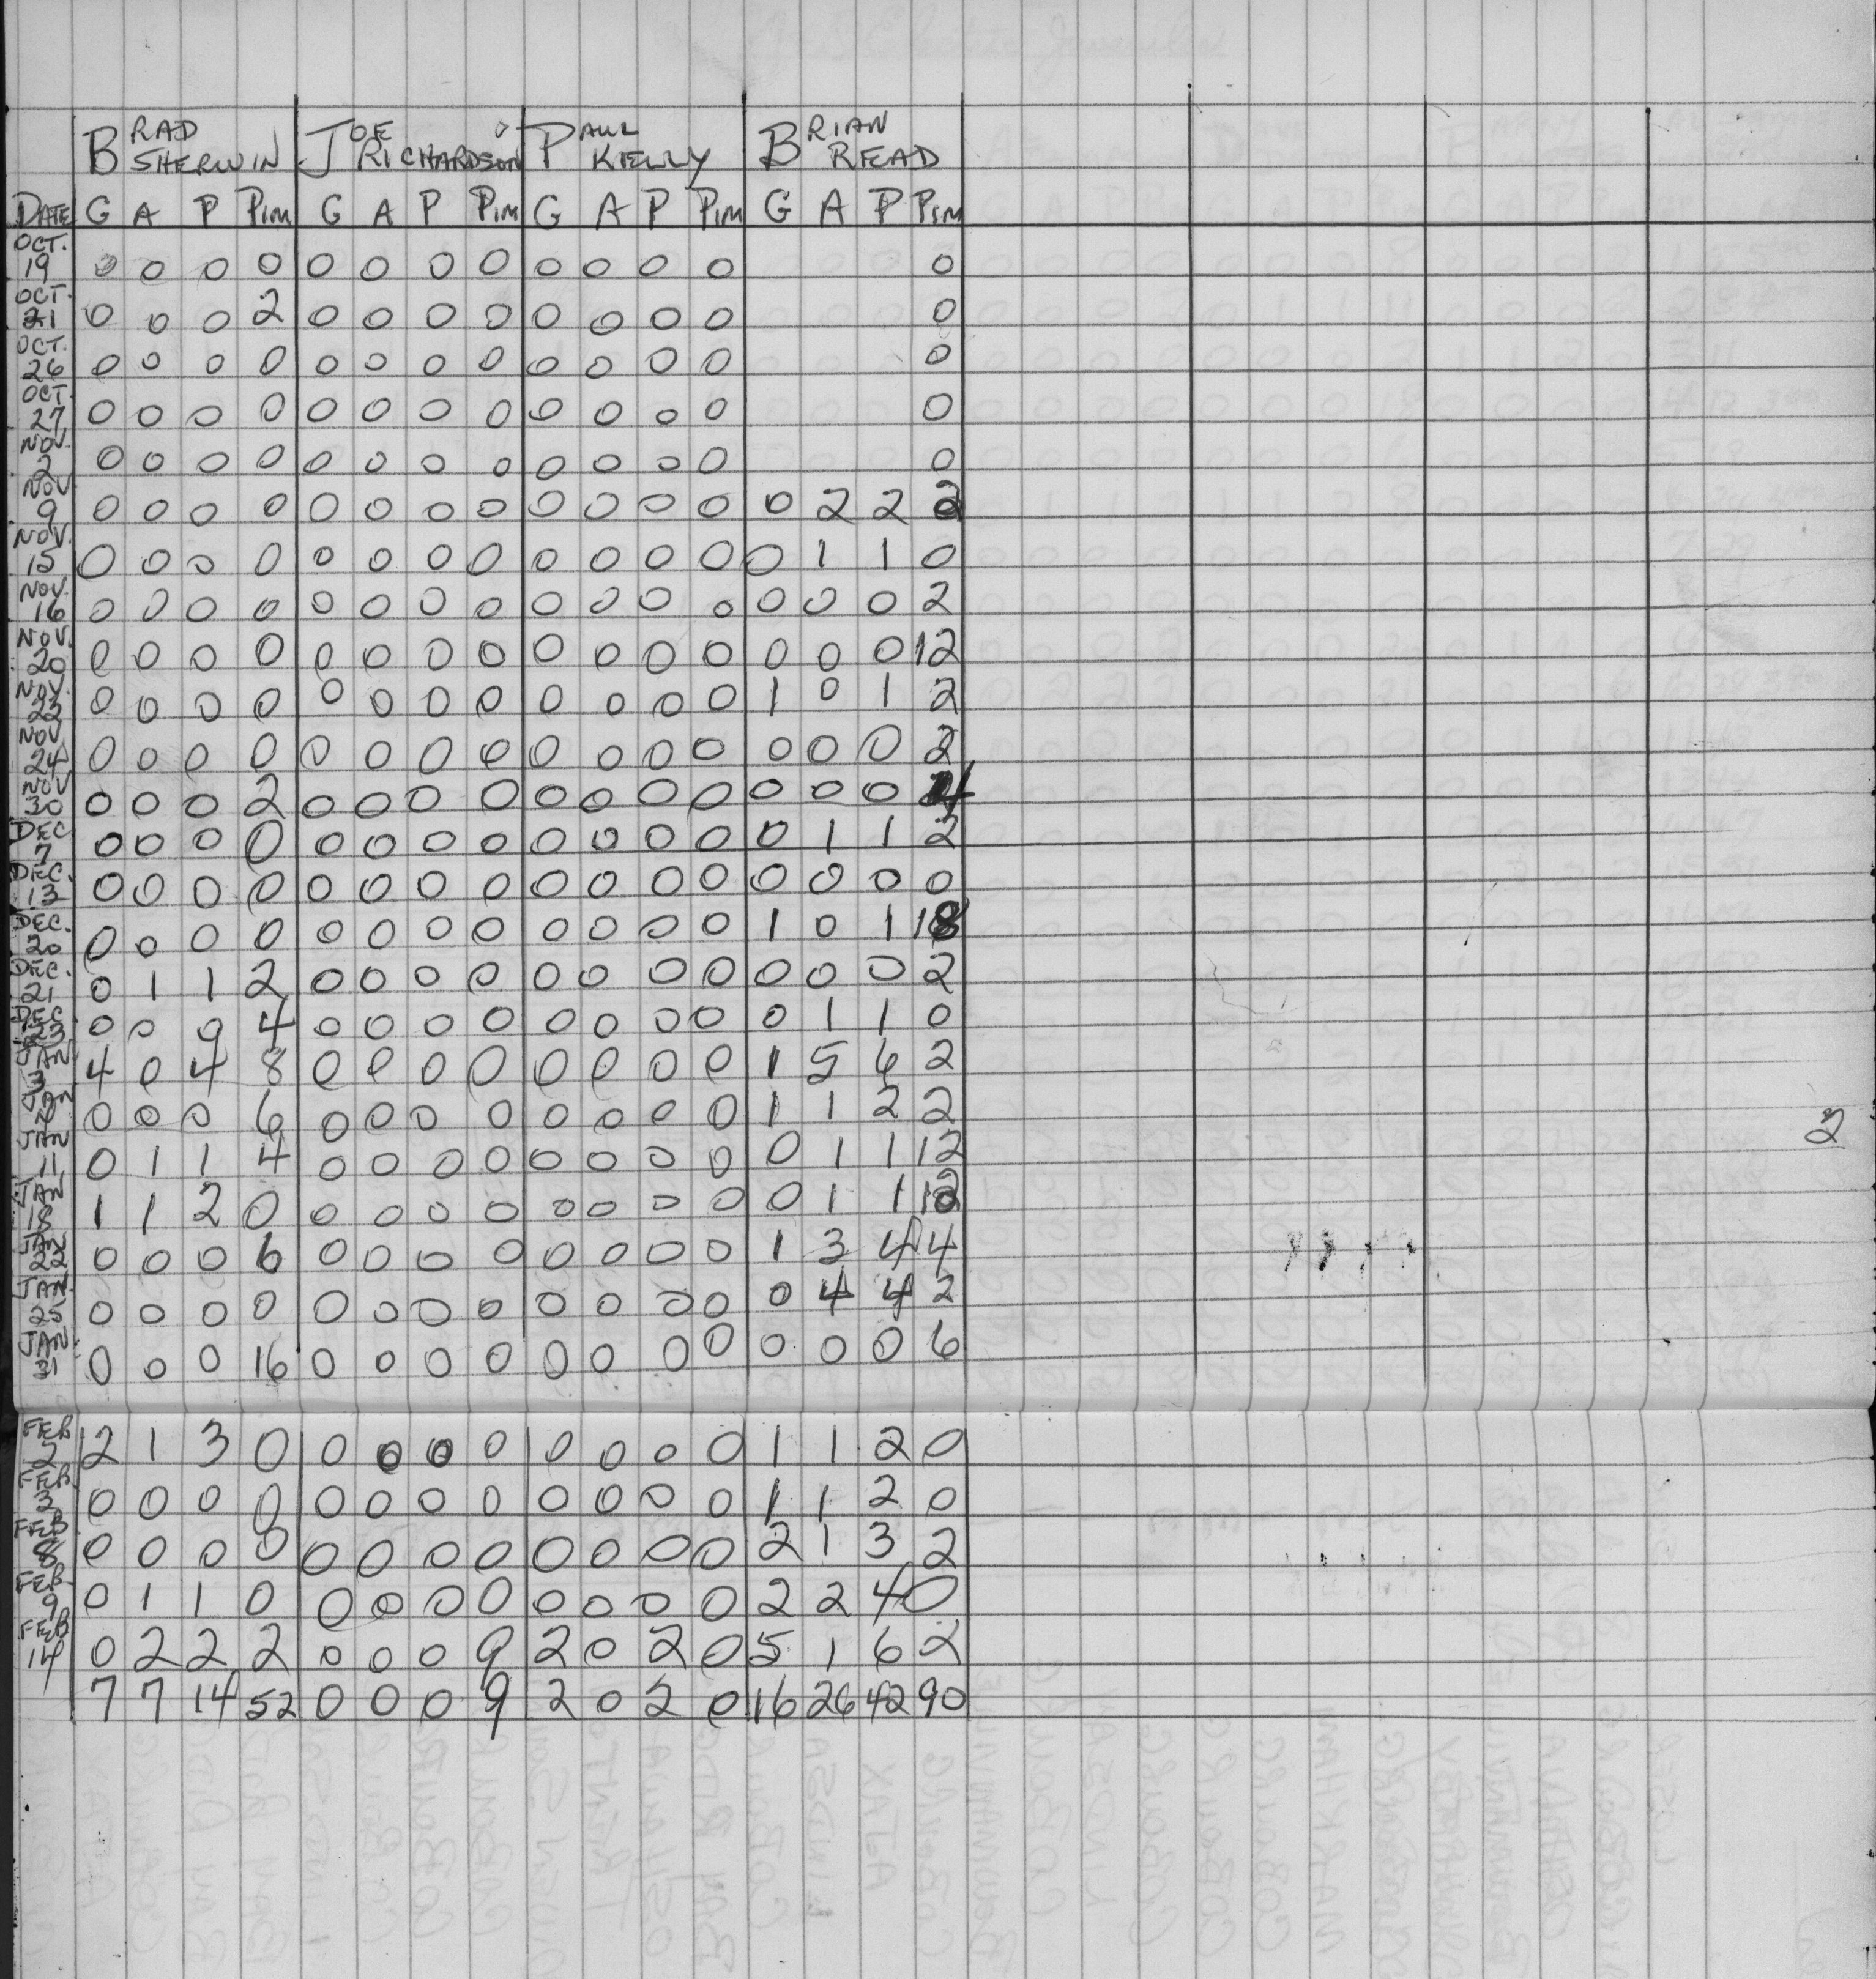 BRAD SHERWIN JOE RICHARDSON PAUL KELLY BRIAN READ
DATE G A P PIM G A P PIM G A P PIM G A P PIM
OCT. 19 0 0 0 0 0 0 0 0 0 0 0 0 0
OCT. 21 0 0 0 2 0 0 0 0 0 0 0 0 0
OCT. 26 0 0 0 0 0 0 0 0 0 0 0 0 0
OCT. 27 0 0 0 0 0 0 0 0 0 0 0 0 0
NOV. 2 0 0 0 0 0 0 0 0 0 0 0 0 0
NOV 9 0 0 0 0 0 0 0 0 0 0 0 0 0 2 2 2
NOV. 15 0 0 0 0 0 0 0 0 0 0 0 0 0 1 1 0
NOV. 16 0 0 0 0 0 0 0 0 0 0 0 0 0 0 0 2
NOV. 20 0 0 0 0 0 0 0 0 0 0 0 0 0 0 0 12
NOV. 22 0 0 0 0 0 0 0 0 0 0 0 0 1 0 1 2
NOV. 24 0 0 0 0 0 0 0 0 0 0 0 0 0 0 0 2
NOV 30 0 0 0 2 0 0 0 0 0 0 0 0 0 0 0 4
DEC 7 0 0 0 0 0 0 0 0 0 0 0 0 0 1 1 2
DEC. 13 0 0 0 0 0 0 0 0 0 0 0 0 0 0 0 0
DEC. 20 0 0 0 0 0 0 0 0 0 0 0 0 1 0 1 18
DEC. 21 0 1 1 2 0 0 0 0 0 0 0 0 0 0 0 2
DEC 23 0 0 0 4 0 0 0 0 0 0 0 0 0 1 1 0
JAN 3 4 0 4 8 0 0 0 0 0 0 0 0 1 5 6 2
JAN 0 0 0 6 0 0 0 0 0 0 0 0 1 1 2 2
JAN 11 0 1 1 4 0 0 0 0 0 0 0 0 0 1 1 12
2
JAN 18 1 1 2 0 0 0 0 0 0 0 0 0 0 1 1 12
JAN 22 0 0 0 6 0 0 0 0 0 0 0 0 1 3 4 4
JAN. 25 0 0 0 0 0 0 0 0 0 0 0 0 0 4 4 2
JAN. 31 0 0 0 16 0 0 0 0 0 0 0 0 0 0 0 6
FEB 2 2 1 3 0 0 0 0 0 0 0 0 0 1 1 2 0
FEB. 3 0 0 0 0 0 0 0 0 0 0 0 0 1 1 2 0
FEB 8 0 0 0 0 0 0 0 0 0 0 0 0 2 1 3 2
FEB. 9 0 1 1 0 0 0 0 0 0 0 0 0 2 2 4 0
FEB 14 0 2 2 2 0 0 0 9 2 0 2 0 5 1 6 2
7 7 14 52 0 0 0 9 2 0 2 0 16 26 42 90